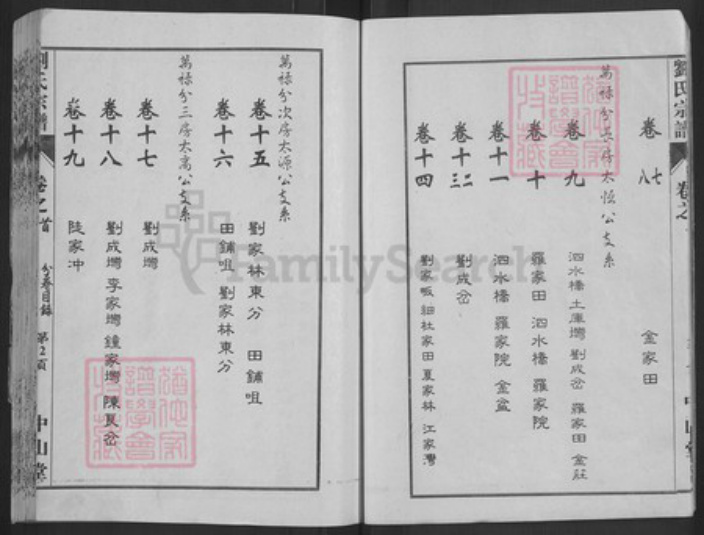 劉氏宗譜
卷之
中山堂
卷七八 金家田
萬祿分長房太恒公支系
卷九 泗水橋 土庫灣 劉成岔 羅家田 金莊
卷十 羅家田 泗水橋 羅家院
卷十一 泗水橋 羅家院 金盆
卷十二三 劉成岔
卷十四 劉家畈 細杜家田 夏家林 江家灣
萬祿分次房太源公支系
卷十五 劉家林東分 田鋪咀
卷十六 田鋪咀 劉家林東分
萬祿分三房太高公支系
卷十七 劉成塆
卷十八 劉成塆 李家塆 鐘家塆 陳夏岔
卷十九 陡家冲
劉氏宗譜
卷之首
分卷目錄
第2頁
中山堂
FamilySearch